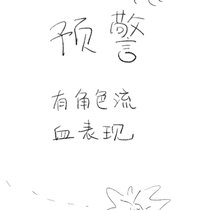 预警
有角色流
血表现